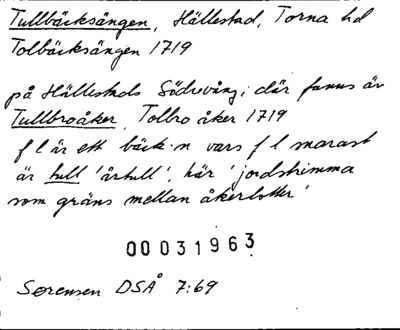 Tullbäcksängen, Hällestad, Torna hd
Tolbäcksängen 1719
på Hällestads Södrevång; där fanns äv
Tullbroåker, Tolbro åker 1719
f l är ett bäck·n vars f l
är tull 'årtull', här 'jordstrimma
som gräns mellan åkerlotter'
00031963
Sørensen DSÅ 7:69